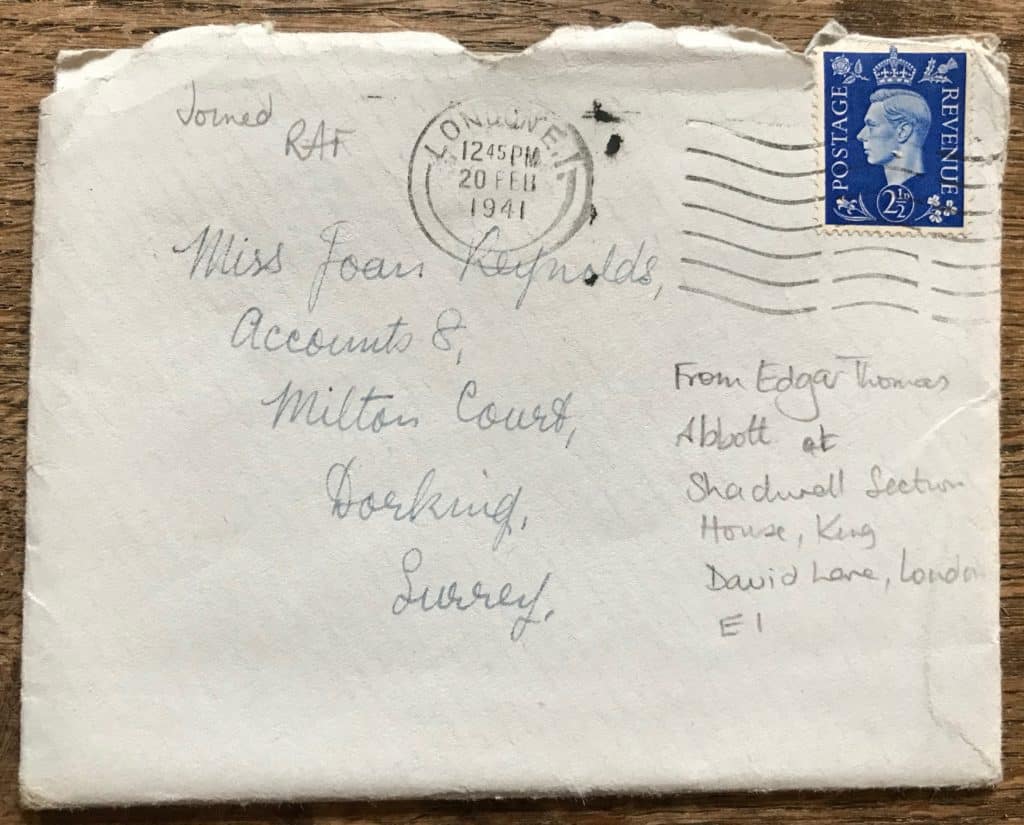 Joined
RAF
LONDON E.1
12 45 PM
20 FEB
1941
POSTAGE
REVENUE
2½D
Miss Joan Reynolds,
Accounts 8,
Milton Court,
Dorking,
Surrey.
From Edgar Thomas
Abbott at
Shadwell Section
House, King
David Lane, London
E1